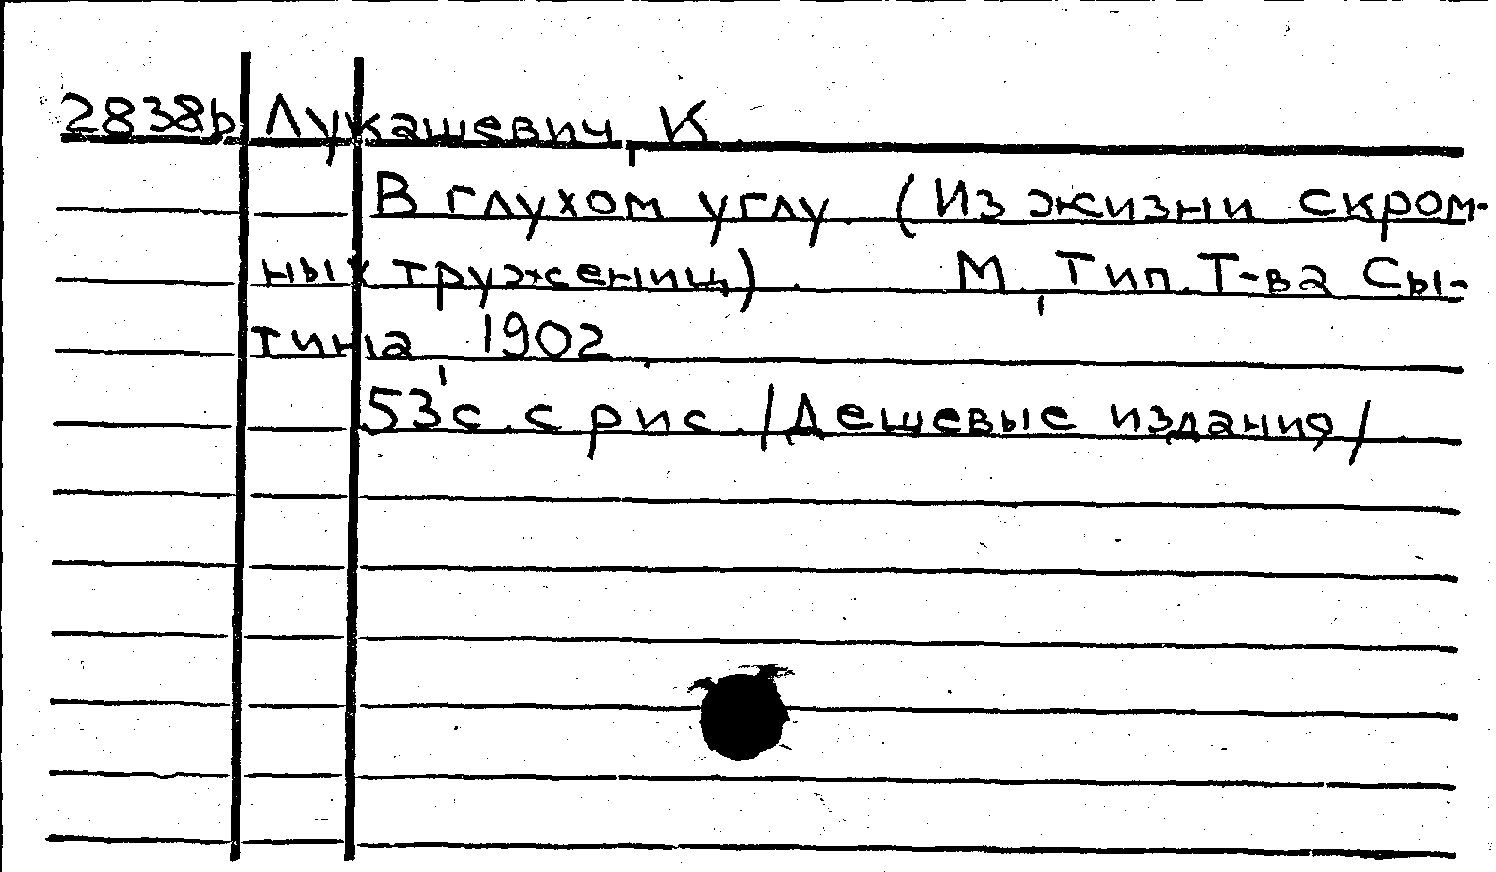 2838b Лукашевич, К.
В глухом углу. (Из жизни скром-
ных тружениц). М., Тип. Т-ва Сы-
тина, 1902.
53 с. с рис. /Дешевые издания/.